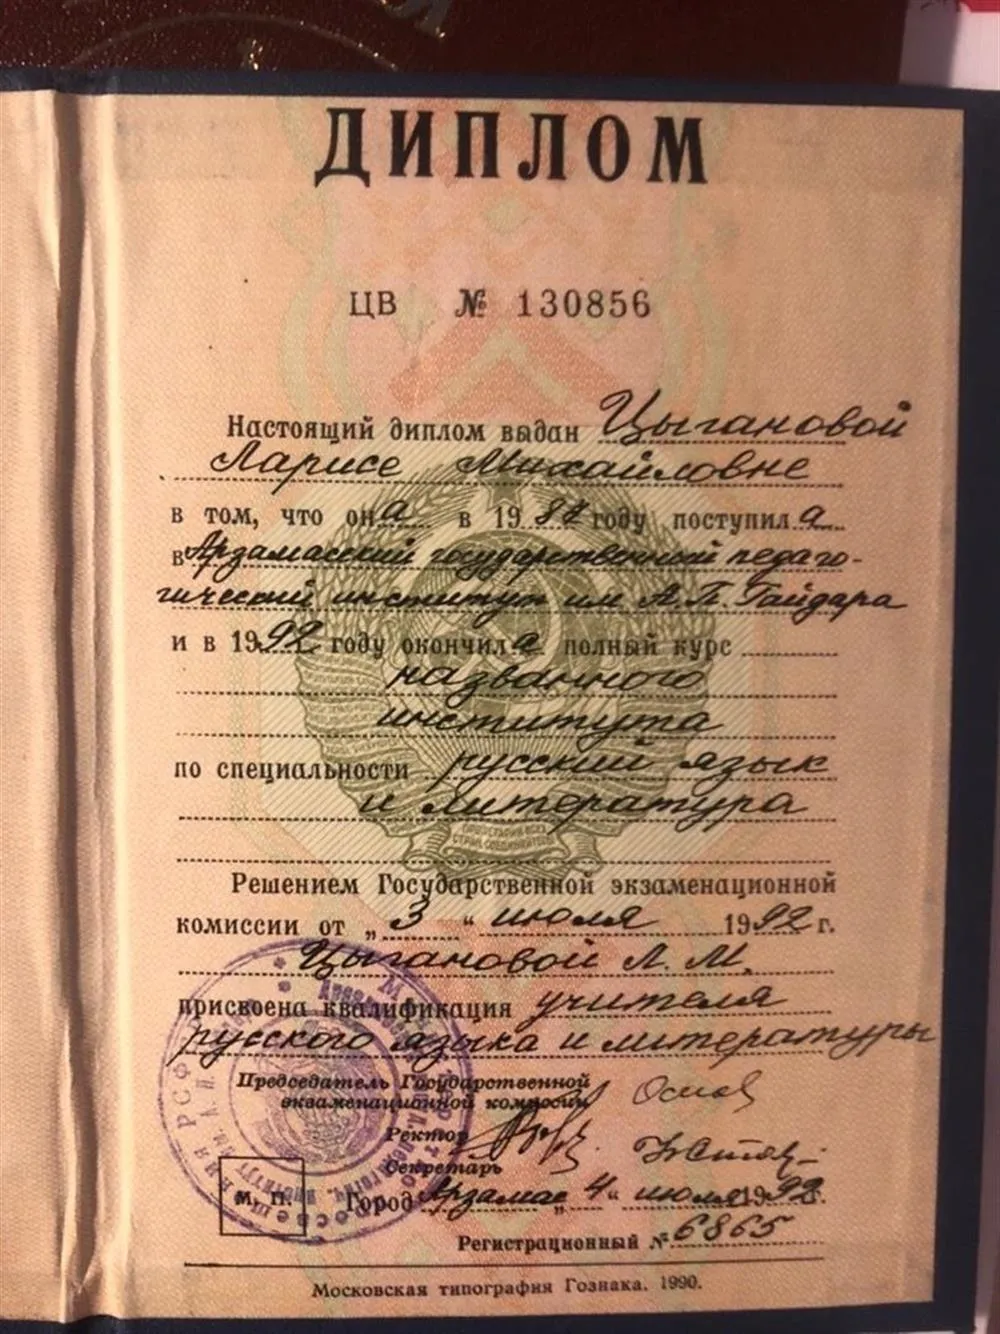 ДИПЛОМ
ЦВ № 130856
Настоящий диплом выдан Цыгановой
Ларисе Михайловне
в том, что она в 1987 году поступила
в Арзамасский государственный педаго-
гический институт им А.П. Гайдара
и в 1992 году окончила полный курс
названного
института
по специальности русский язык
и литература
Решением Государственной экзаменационной
комиссии от „3“ июля 1992 г.
Цыгановой Л. М.
присвоена квалификация учителя
русского языка и литературы
Председатель Государственной
экзаменационной комиссии
Ректор
Секретарь
М. П.
Город Арзамас „4“ июля 1992г.
Регистрационный № 6865
Московская типография Гознака. 1990.